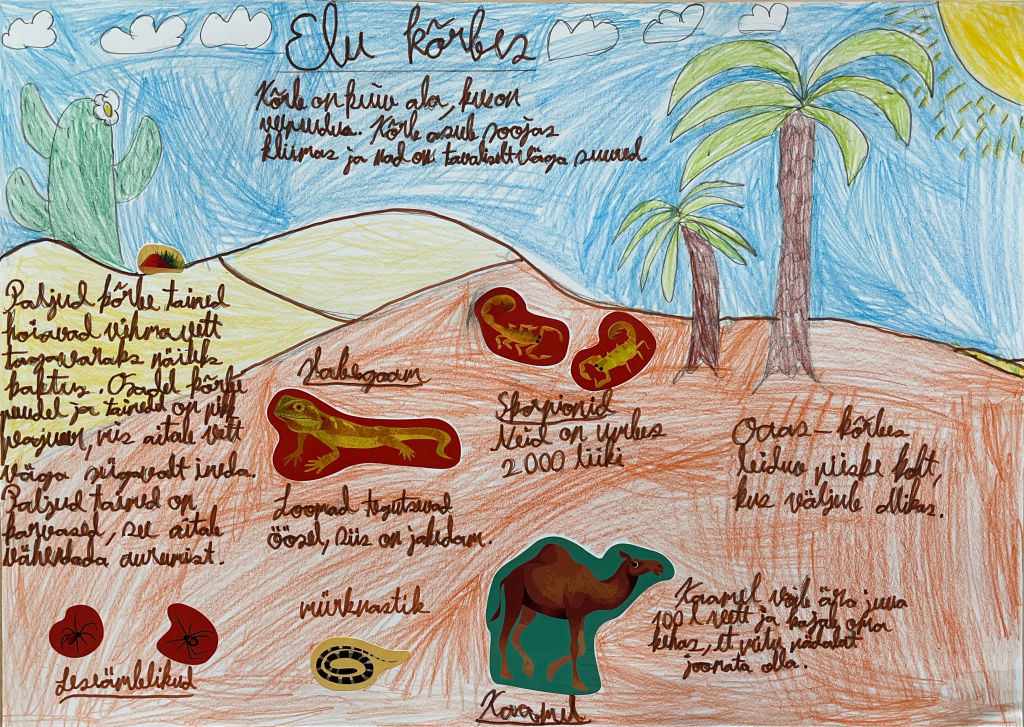 Elu kõrbes
Kõrb on kuiv ala, kus on
veepuudus. Kõrb asub soojas
kliimas ja nad on tavaliselt väga suured
Paljud kõrbe tained
hoiavad vihma vett
tagavaraks näiteks
kaktus. Osadel kõrbe
puudel ja tainedel on pikk
peajuur, mis aitab vett
väga sügavalt imeda.
Paljud tained on
karvased, see aitab
vähendada aurumist.
Habeagaam
Loomad tegutsevad
öösel, siis on jahedam.
Skorpionid
Neid on umbes
2000 liiki
Oaas – kõrbes
leiduv niiske koht,
kus väljub allikas.
mürknastik
Kaamel võib ära juua
100 l vett ja kasutab oma
kehas, et mitu nädalat
joomata olla.
Lesämblikud
Kaamel